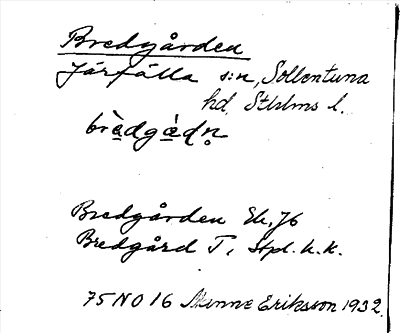 Bredgården
Järfälla s:n, Sollentuna
hd, Sthlms l.
brè̱dgà̱dn̥
Bredgården Ek. 76
Bredgård T, Stpl. k.k.
75 NO 16 Manne Eriksson 1932.